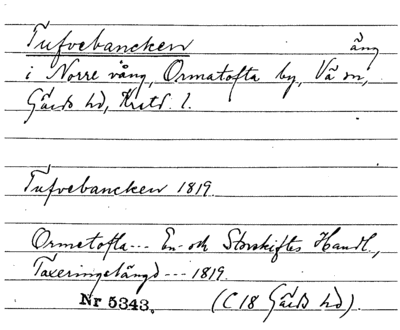 Tufvebancken äng
i Norre vång, Ormatofta by, Vä sn,
Gärds hd, Kristd. l.
Tufvebancken 1819.
Ormatofta--- En- och Storskiftes Handl.,
Taxeringslängd --- 1819.
Nr 5343. (C 18 Gärds hd).